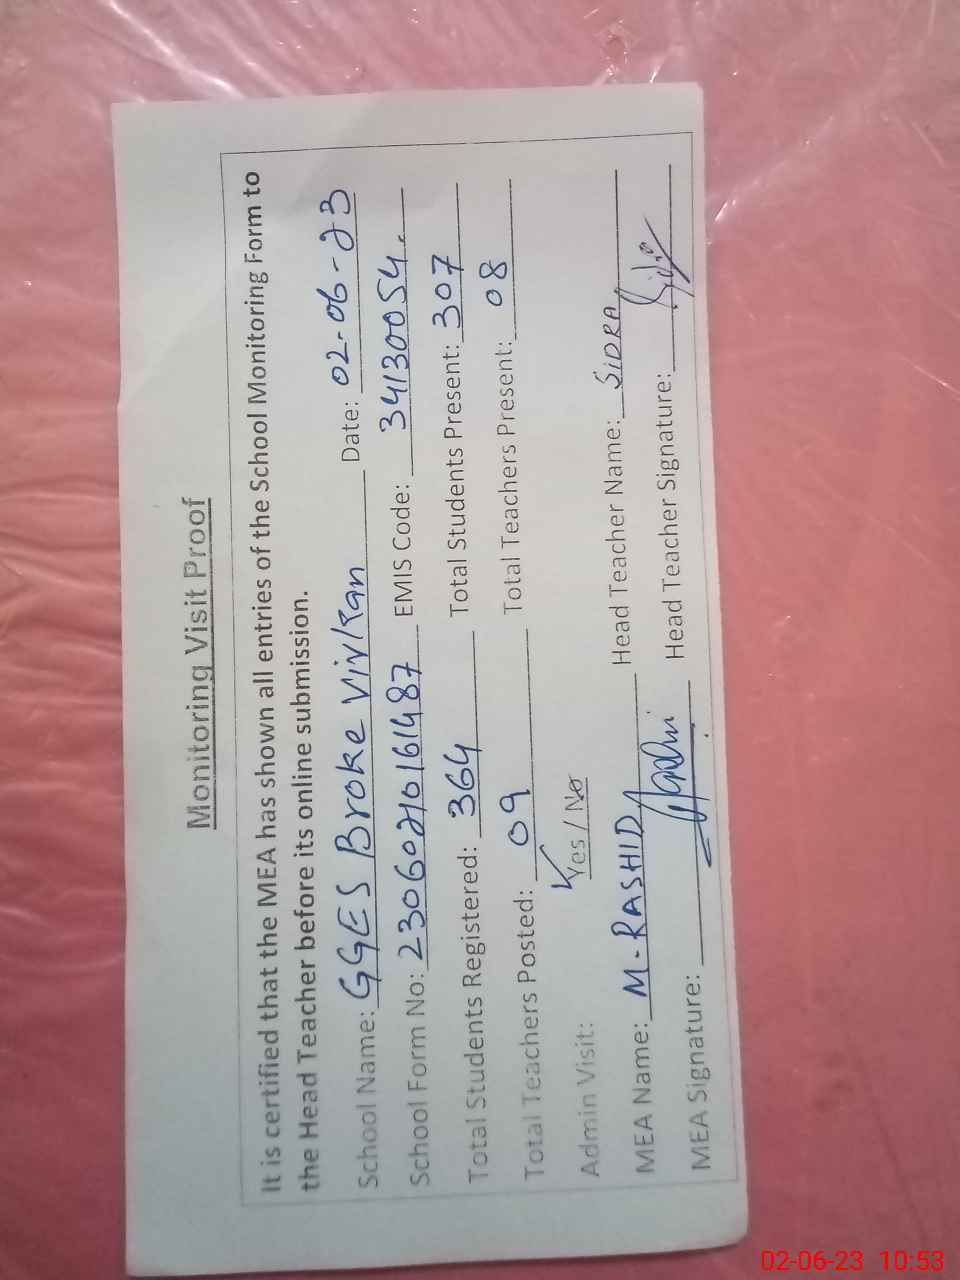 Monitoring Visit Proof
It is certified that the MEA has shown all entries of the School Monitoring Form to
the Head Teacher before its online submission.
School Name: GGES Broke Virkan Date: 02-06-23
School Form No: 23060210161487 EMIS Code: 34130054.
Total Students Registered: 364 Total Students Present: 307
Total Teachers Posted: 09 Total Teachers Present: 08
Admin Visit: Yes / No
MEA Name: M. RASHID Head Teacher Name: SIDRA
MEA Signature: Head Teacher Signature:
02-06-23 10:53